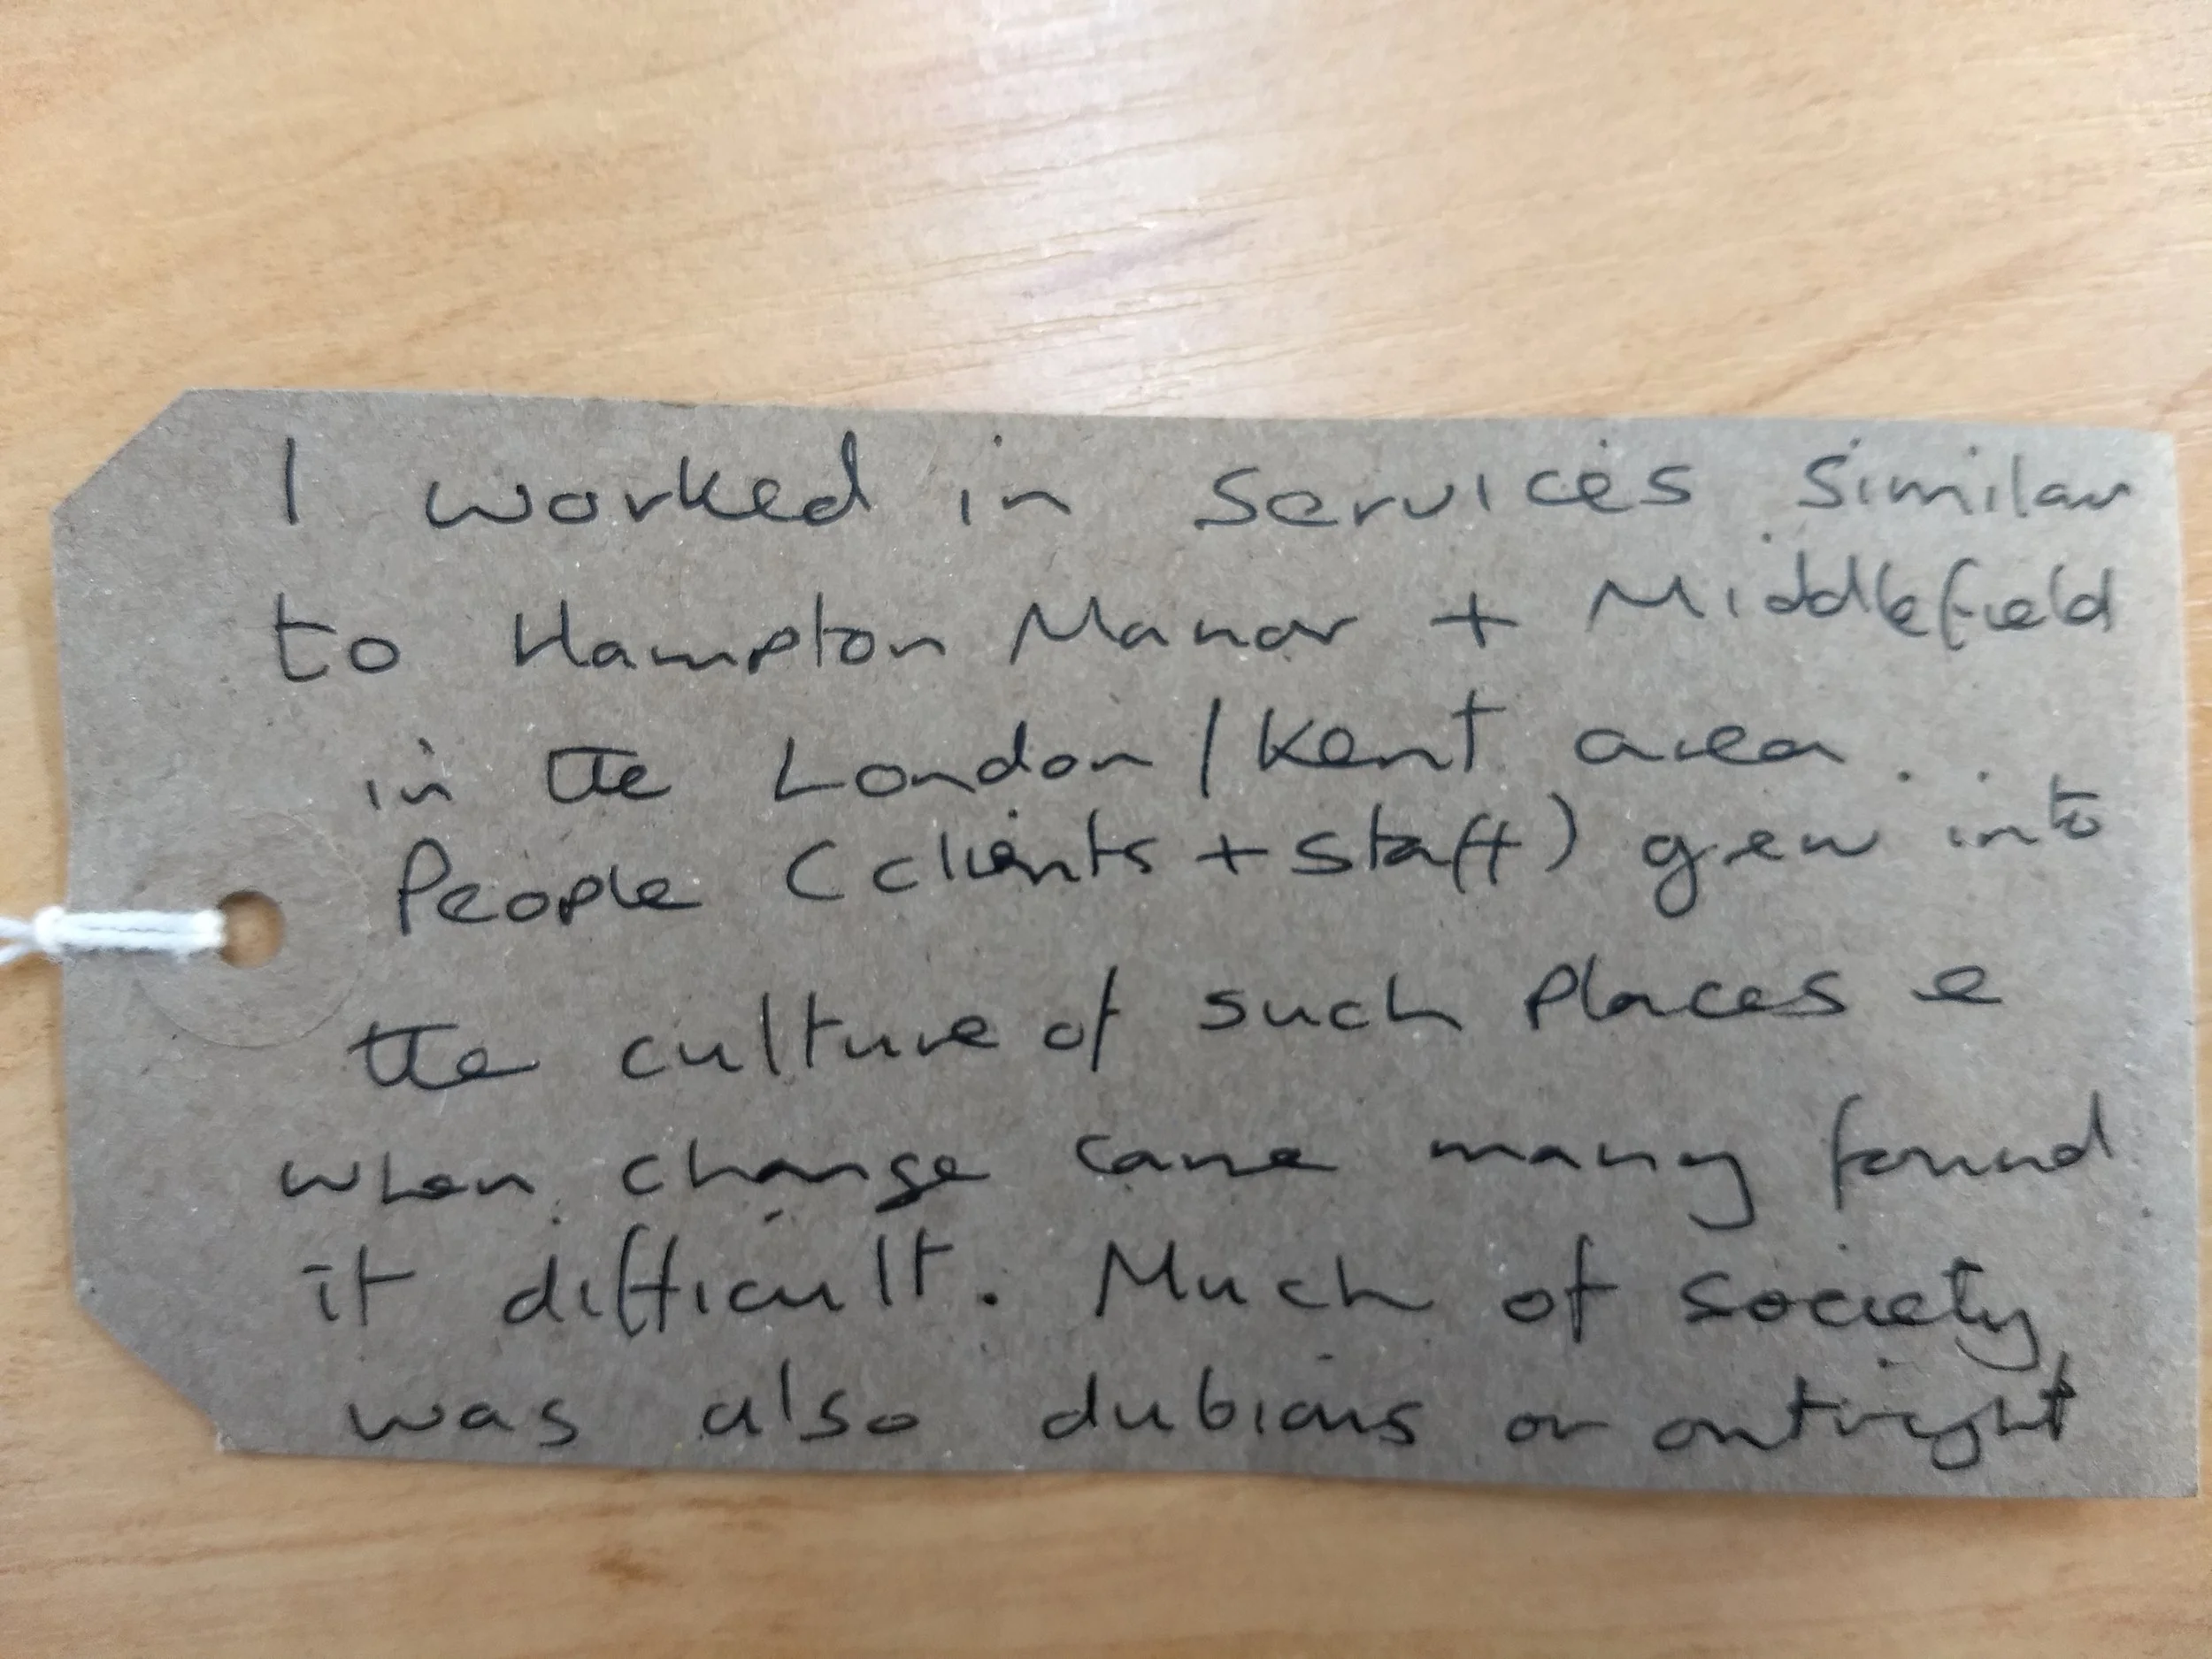 I worked in services similar
to Hampton Manor + Middlefield
in the London / Kent area.
People (clients + staff) grew into
the culture of such places e
when change came many found
it difficult. Much of society
was also dubious or outright